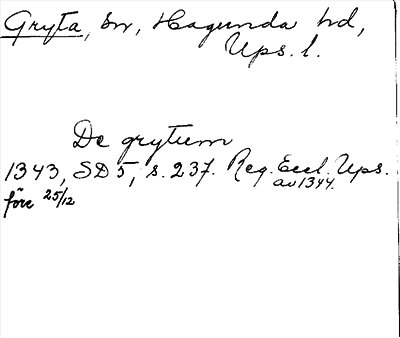 Gryta, sn, Hagunda hd,
Ups. l.
De grytum
1343, SD 5, s. 237. Reg. Eccl. Ups.
av 1344.
före 25/12